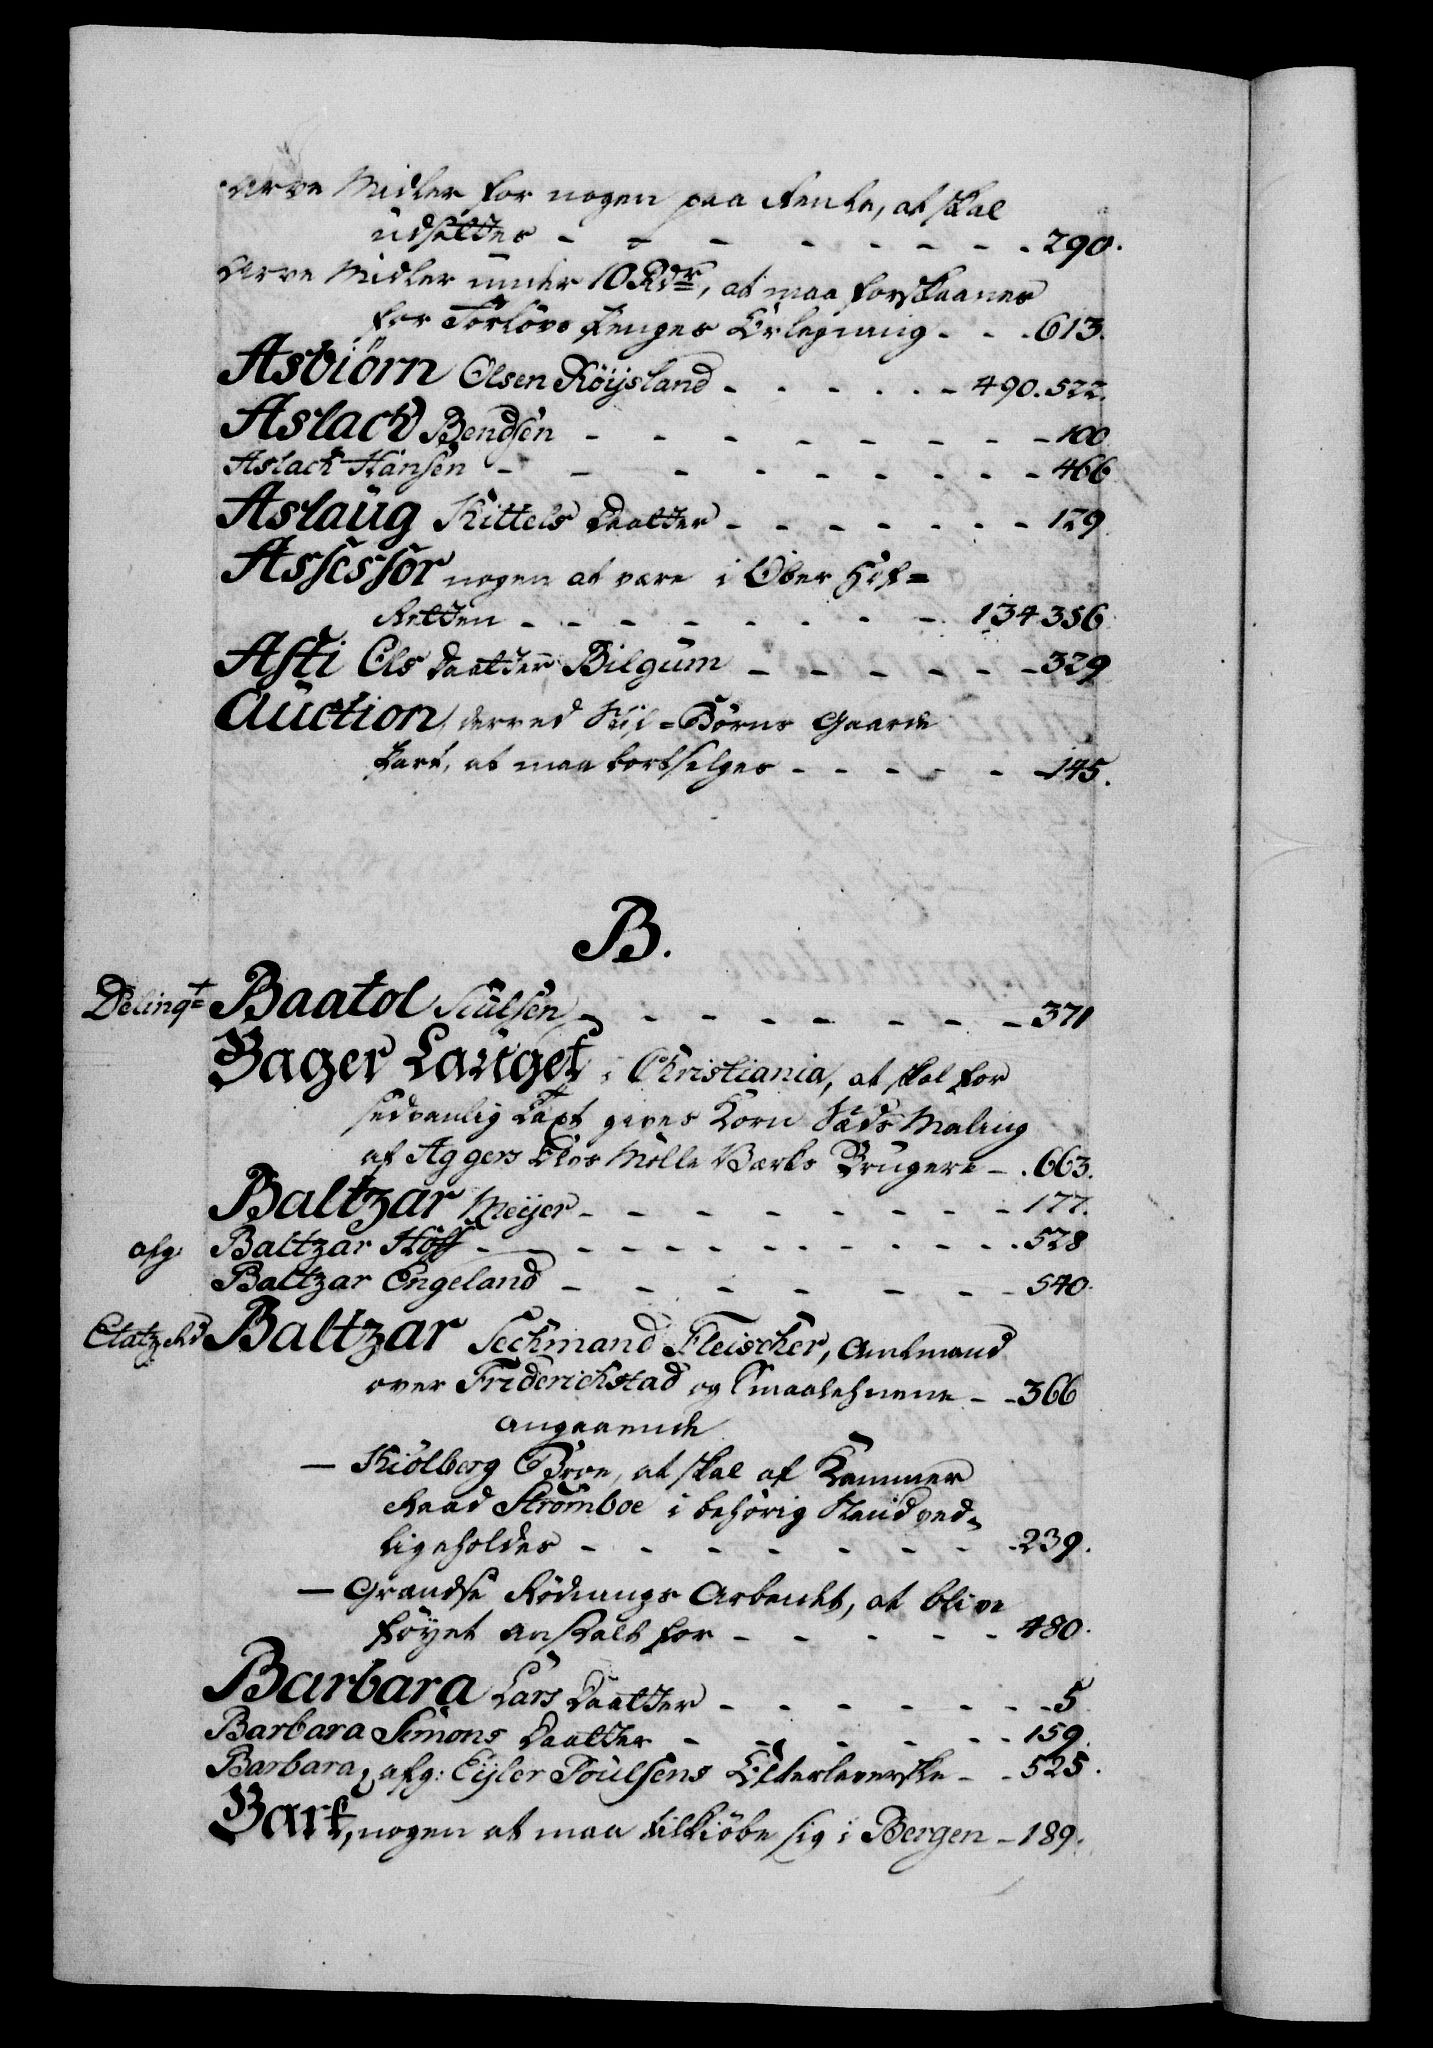 Arve Midler for nogen paa Rente, at skal
udsættes - - - - - - - 290.
Arve Midler under 10 Rdr, at maa forskaanes
for Forlovs Penges Erlegning - - - 613.
Asbiörn Olsen Röijsland - - - - - - 490. 522.
Aslach Bendsen - - - - - - - - 100
Aslach Hansen - - - - - - - - 466
Aslaug Kittels Daatter - - - - - - - 129
Assessor nogen at være i Ober Hof=
Retten - - - - - - - - 134 356
Asti Els Daatter Bilgum - - - - - - 329
Auction, derved Kiil=Börns Gaarde
Part, at maa bortselges - - - - - - 145.
B.
Delinqt= Baatol Siulsen - - - - - - - - 371
Bager Lauget i Christiania, at skal for
sedvanlig Taxt gives Korn Sæds Maling
af Aggers Elvs Mölle Værks Brugere - . 663.
Baltzar Meijer - - - - - - - - - 177.
afg: Baltzar Höff - - - - - - - - - - - 528
Baltzar Engeland - - - - - - - 540.
Etatz Rd Baltzar Sechmand Fleischer, Amtmand
over Friderichstad og Smaalehnene - - 366
angaaende
— Kiölberg Broe, at skal af Kammer
Raad Strömboe i behörig Stand ved=
ligeholdes - - - - - - - 239.
— Grændse Rödnings Arbeidet, at blive
föyet Anstalt for - - - - - 480.
Barbara Lars Daatter - - - - - - - 5
Barbara Simons Daatter - - - - - - 159.
Barbara, afg: Eijler Poulsens Efterleverske - - 525.
Bart, nogen at maa tilkiöbe sig i Bergen - 189.